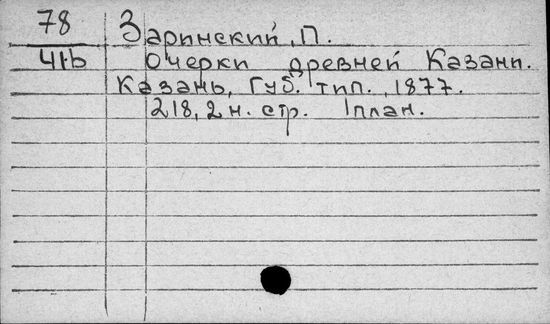 78
41b
Заринский, П.
Очерки древней Казани.
Казань, Губ. тип., 1877.
218, 2 н. стр. 1 план.